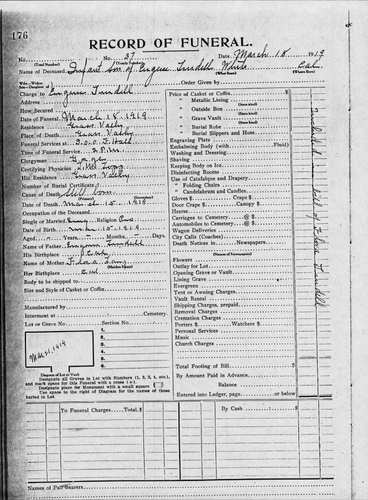 176
RECORD OF FUNERAL.
No. No. 37 Date March 18 1919
(Total Number) (Yearly Number)
Name of Deceased, Infant son of Eugene Tindell White Cal
(What Race) (Where Born)
Order Given by
Charge to Eugene Tindell
Address
How Secured
Date of Funeral March 18, 1919
Residence Grass Valley
Place of Death Grass Valley
Funeral Services at I.O.O.F. Hall
Time of Funeral Service 2 P.M.
Clergyman
Certifying Physician
His Residence Grass Valley
Number of Burial Certificate
Cause of Death Still Born
(Primary) (Secondary)
Date of Death
Occupation of the Deceased
Single or Married Religion
Date of Birth
Aged Years Months, Days.
Name of Father, Eugene Tindell
His Birthplace Cal
Name of Mother Flora
(Maiden Name)
Her Birthplace Cal
Body to be shipped to
Size and Style of Casket or Coffin
Manufactured by
Interment at Cemetery.
Lot or Grave No. Section No.
1.
2.
3.
4.
5.
6.
Diagram of Lot or Vault
Designate all Graves in Lot with Numbers (1, 2, 3, 4, etc.),
and mark space for this Funeral with a cross (+).
Designate place for Monument with a small square
Use space to the right of Diagram for the names of those
buried in Lot
Price of Casket or Coffin $
" Metallic Lining
(State kind)
" Outside Box
(State kind)
" Grave Vault
(State kind)
" Burial Robe
" Burial Slippers and Hose
Engraving Plate
Embalming Body (with Fluid)
Washing and Dressing
Shaving
Keeping Body on Ice
Disinfecting Rooms
Use of Catafalque and Drapery
" Folding Chairs
" Candelabrum and Candles
Gloves $ Crape $
Door Crape $ Canopy $
Hearse
Carriages to Cemetery @ $
Automobiles to Cemetery @ $
Wagon Deliveries
City Calls (Coaches)
Death Notices in Newspapers.
(Names of Newspapers)
Flowers
Outlay for Lot
Opening Grave or Vault
Lining Grave
Evergreen
Tent or Awning Charges
Vault Rental
Shipping Charges, prepaid
Removal Charges
Cremation Charges
Porters $ Watchers $
Personal Services
Music
Church Charges
Total Footing of Bill $
By Amount Paid in Advance
Balance
Entered into Ledger, page or below
To Funeral Charges, Total $ By Cash $
Names of Pall Bearers